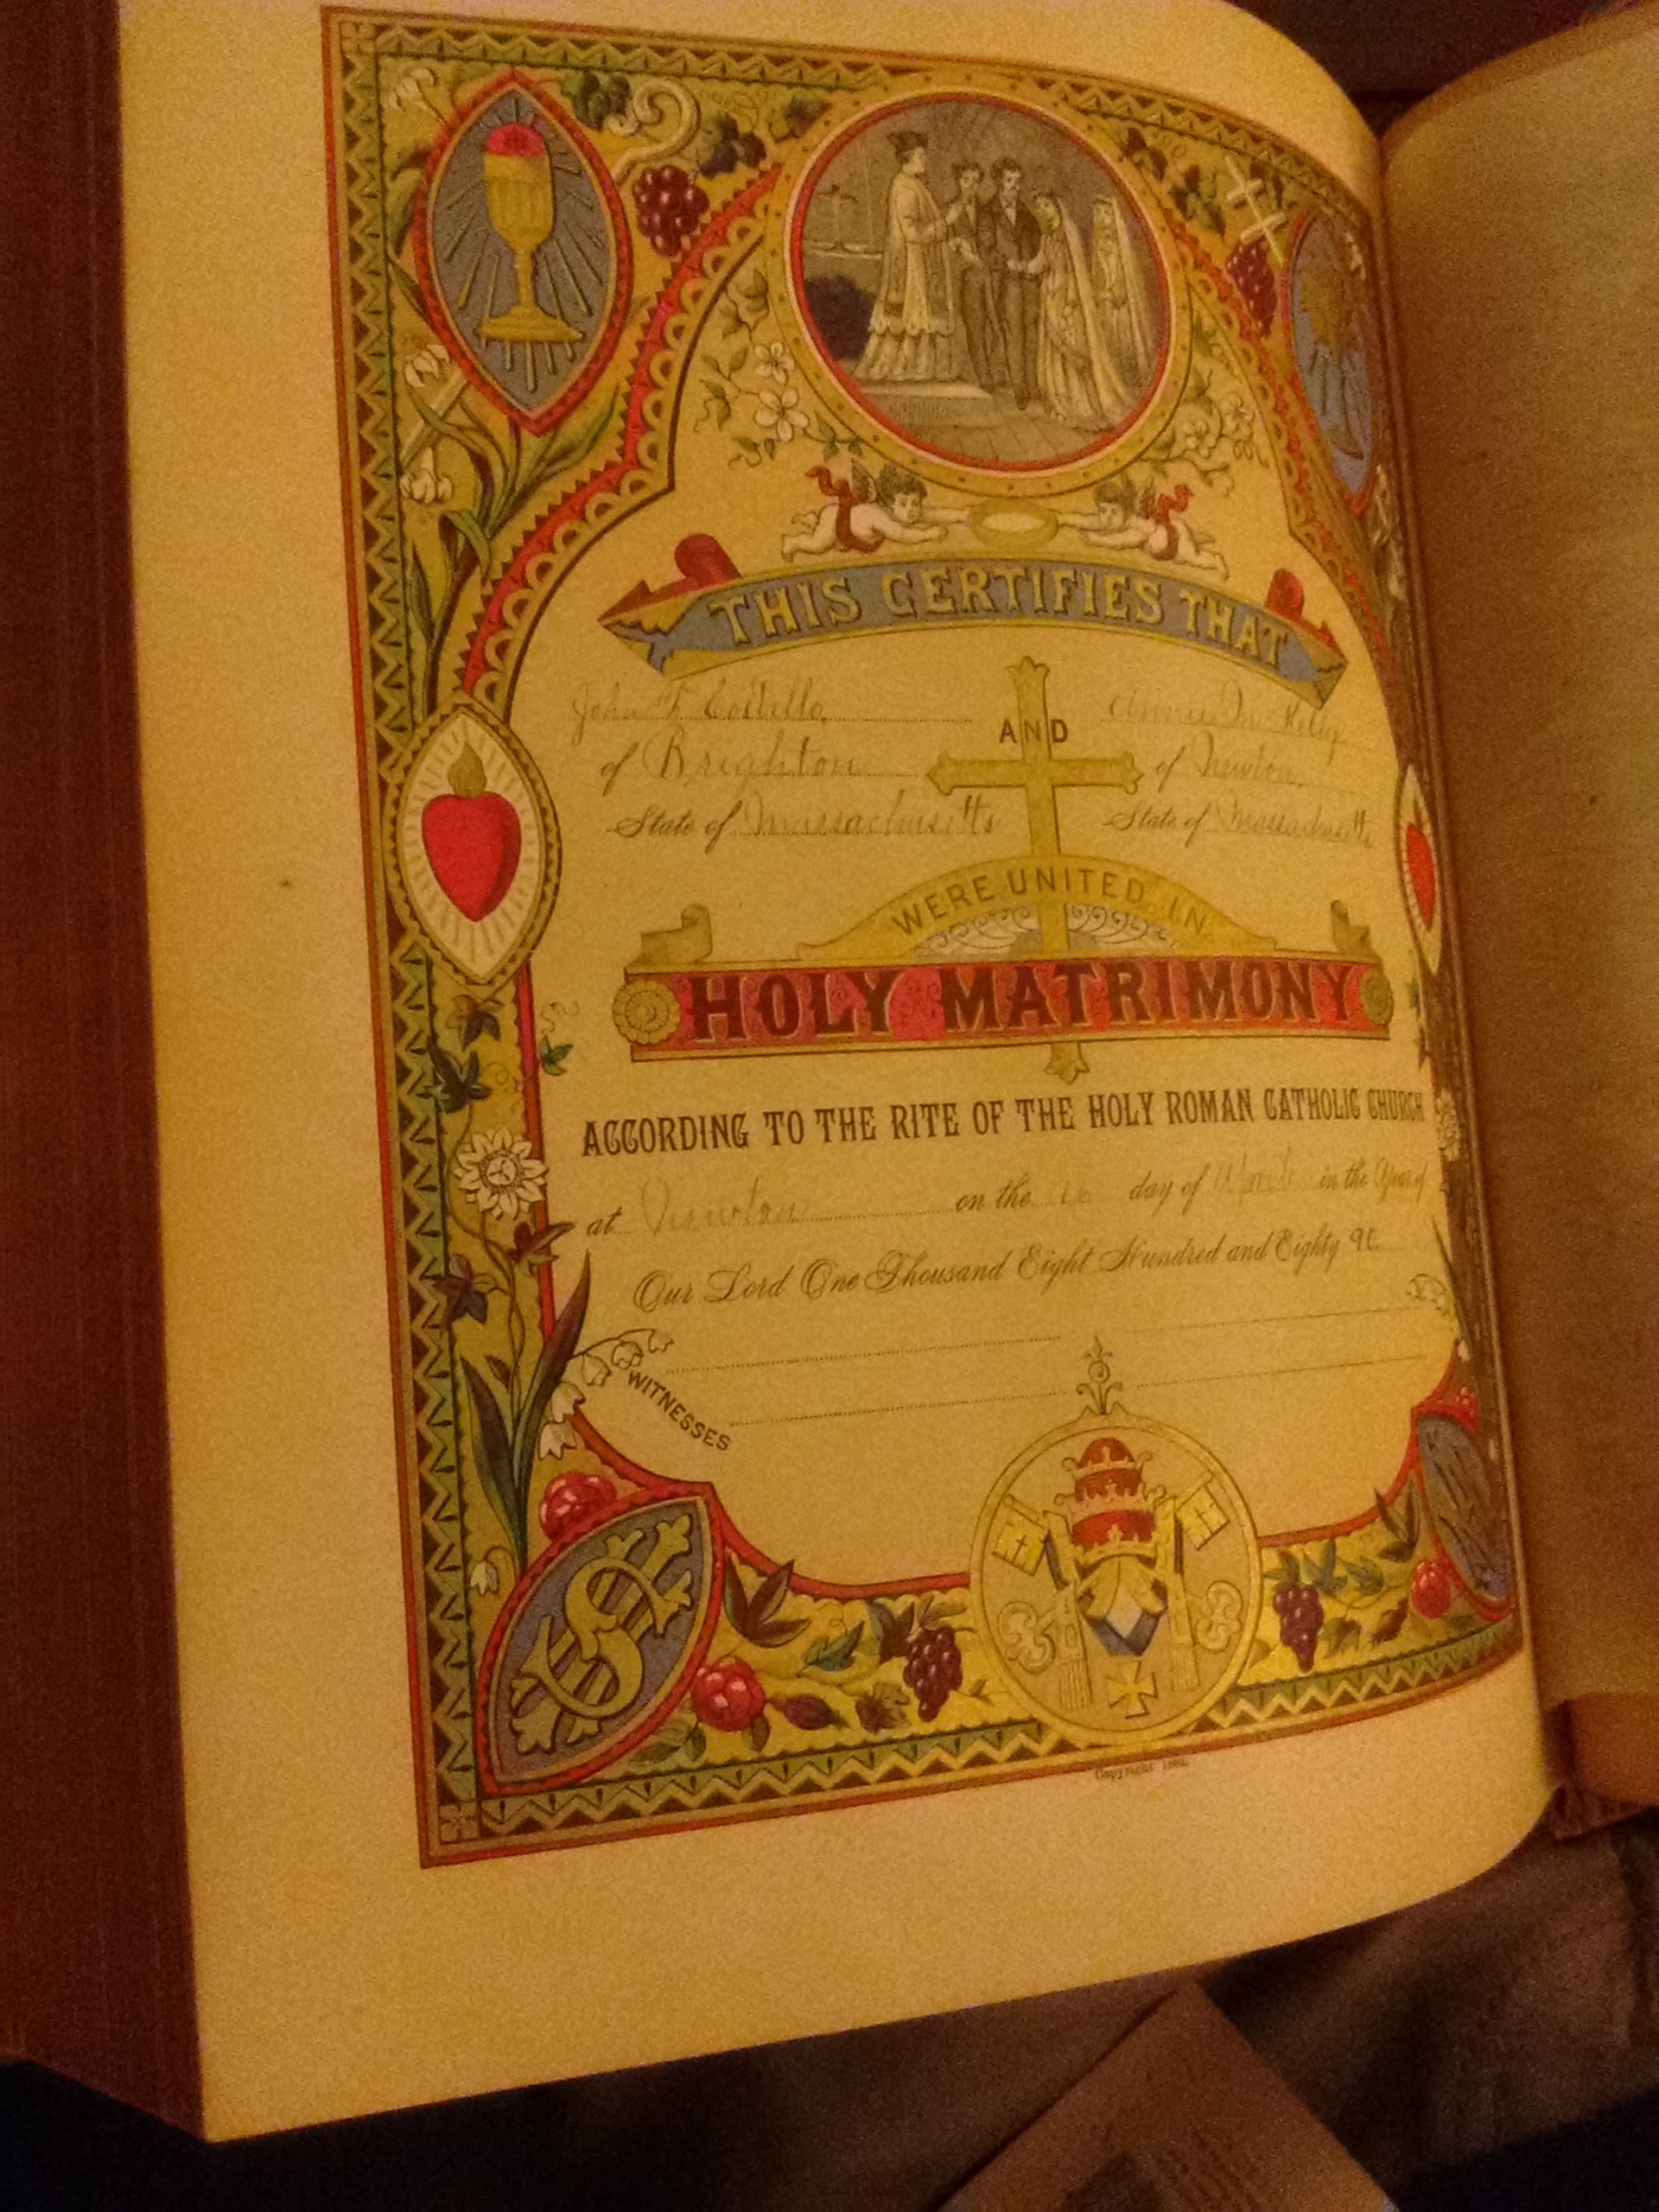 THIS CERTIFIES THAT
John F. Costello AND Anna M Kelly
of Brighton of Newton
State of Massachusetts State of Massachusetts
WERE UNITED IN
HOLY MATRIMONY
ACCORDING TO THE RITE OF THE HOLY ROMAN CATHOLIC CHURCH
at Newton on the day of April in the Year of
Our Lord One Thousand Eight Hundred and Eighty 90.
WITNESSES
Copyright